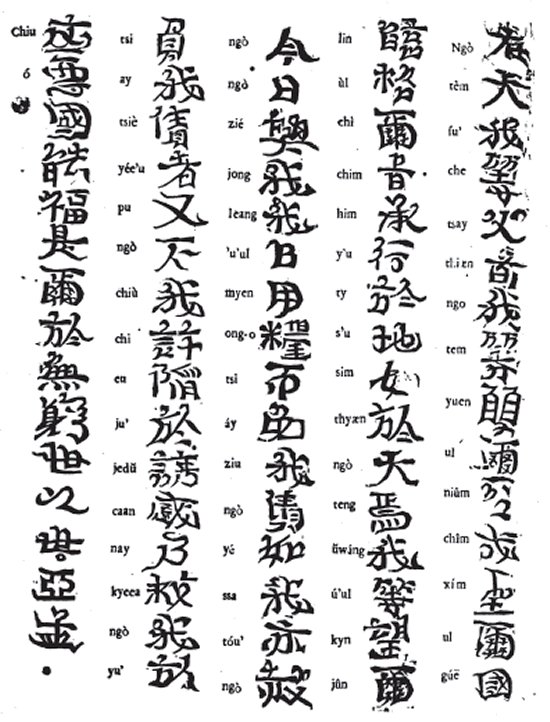 天我等父者我等願爾名成聖爾國
Ngò tèm fu' che tsay thien ngo tem yuen ul niûm chîm xím ul gúë
臨格爾旨承行於地如於天焉我等望爾
lin ùl chì chim him y'u ty s'u sim thyæn ngò teng úwáng ú'ul kyn jûn
今日與我我日用糧而免我債如我亦赦
ngò ngò zié jong leang 'u'ul myen ong-o tsi áy ziu ngò yé ssa tóu' ngò
負我債者又不我許陷於誘感乃救我於
tsi ay tsiè yée'u pu ngò chiù chi en ju' jedü caan nay kyeea ngò yu'
尊國能福是爾於無窮世以世亞孟
Chiu ó